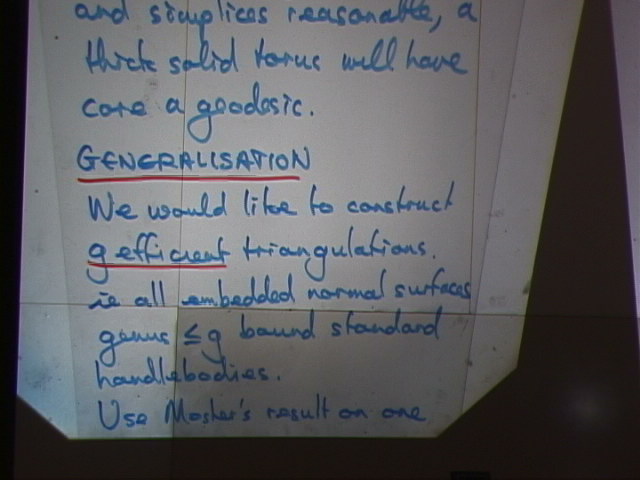 and simplices reasonable, a
thick solid torus will have
core a geodesic.
GENERALISATION
We would like to construct
g efficient triangulations.
ie all embedded normal surfaces
genus ≤ g bound standard
handlebodies.
Use Mosher's result on one